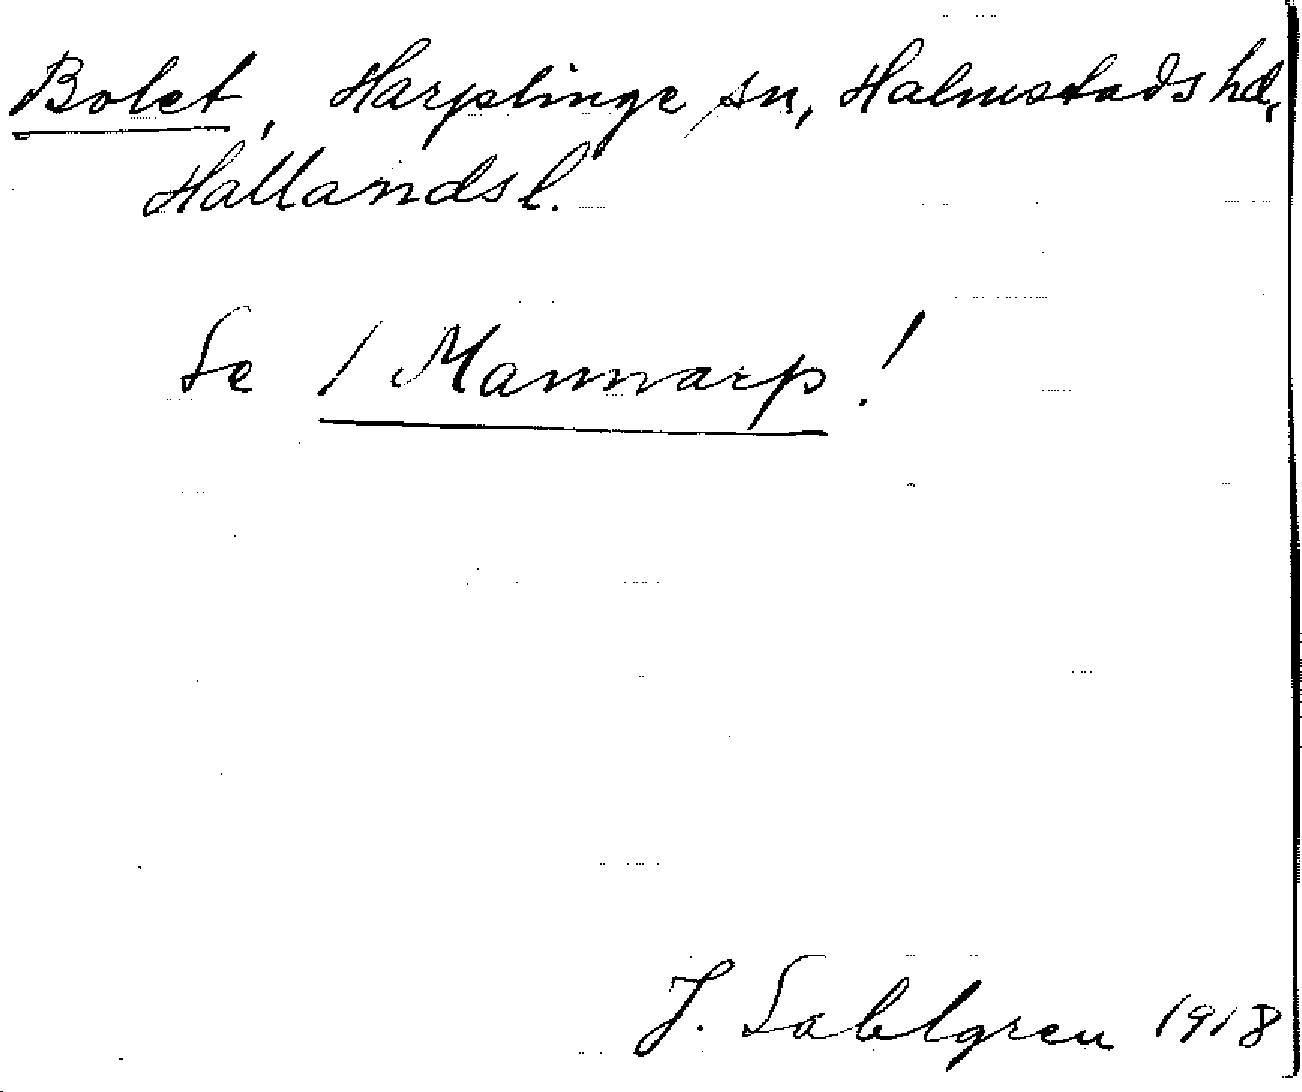 Bolet, Harplinge sn, Halmstads hd,
Hallands l.
Se 1 Mannarp!
J. Sahlgren 1918